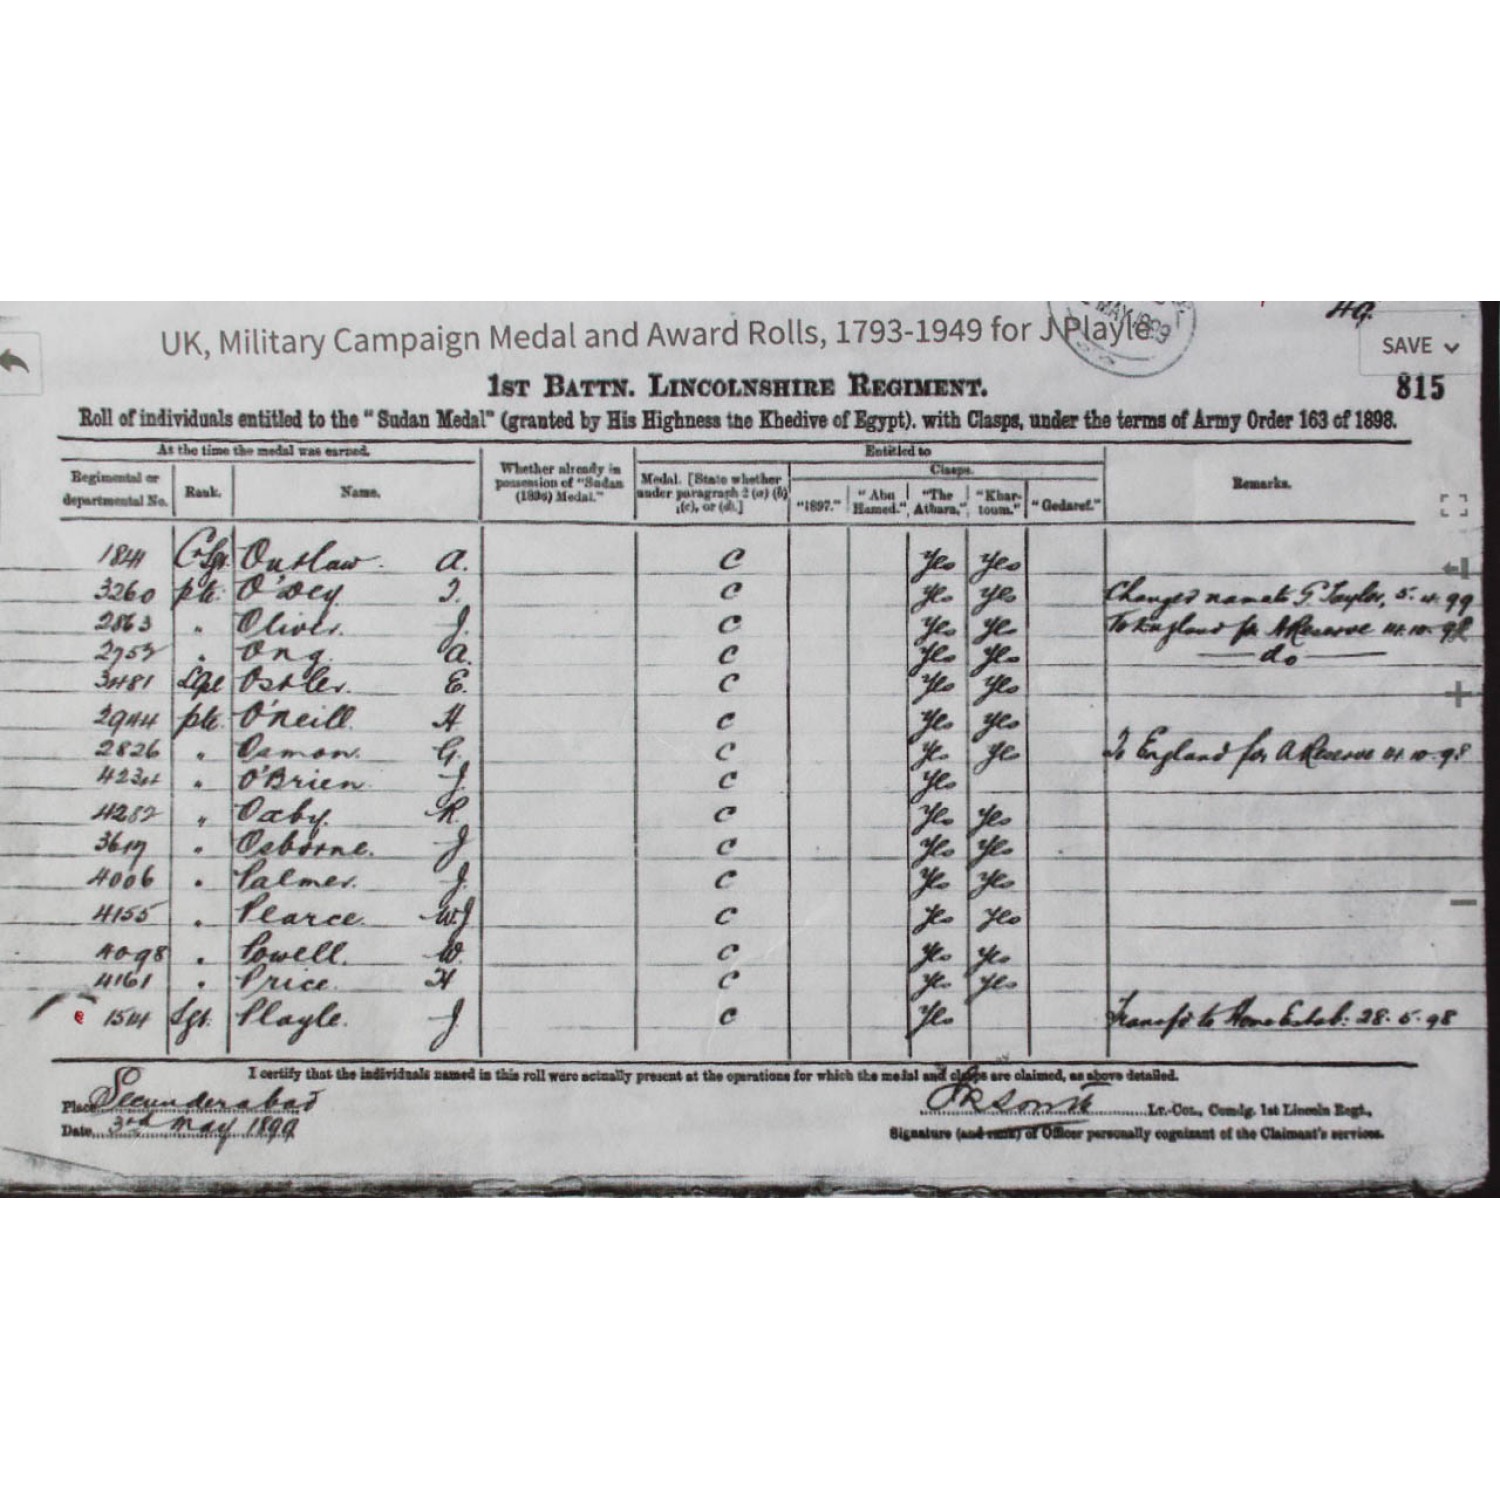 49.
UK, Military Campaign Medal and Award Rolls, 1793-1949 for J Playle
SAVE
MAY 1899
1ST BATTN. LINCOLNSHIRE REGIMENT.
815
Roll of individuals entitled to the "Sudan Medal" (granted by His Highness the Khedive of Egypt). with Clasps, under the terms of Army Order 163 of 1898.
At the time the medal was earned.
Entitled to
Regimental or departmental No.
Rank.
Name.
Whether already in possession of "Sudan (1896) Medal."
Medal. [State whether under paragraph 2 (a) (b) (c), or (d).]
Clasps.
"1897."
"Abu Hamed."
"The Atbara."
"Khartoum."
"Gedaref."
Remarks.
1841 C/Sgt Outlaw. A. C Yes Yes
3260 pte. O'Dey C Yes Yes Changed name to G. Taylor, 5.4.99
2863 " Oliver. J. C Yes Yes To England for A Reserve 14.10.98
" Ong. A. C Yes Yes do
3481 Ostler. E. C Yes Yes
2944 pte. O'Neill H C Yes Yes
2826 " Osmon. G. C Yes Yes To England for A Reserve 14.10.98
4234 " O'Brien J. C Yes
4282 " Oxby. R. C Yes Yes
" Osborne. J C Yes Yes
4006 " Palmer. J. C Yes Yes
4155 " Pearce. W.J C Yes Yes
4098 " Powell. W. C Yes Yes
4161 " Price. H C Yes Yes
1514 Sgt. Playle. J C Yes Transfd to Home Estab: 28.5.98
I certify that the individuals named in this roll were actually present at the operations for which the medal and clasps are claimed, as above detailed.
Place Secunderabad
Lt.-Col., Comdg. 1st Lincoln Regt.,
Date 3rd May 1899
Signature (and rank) of Officer personally cognizant of the Claimant's services.